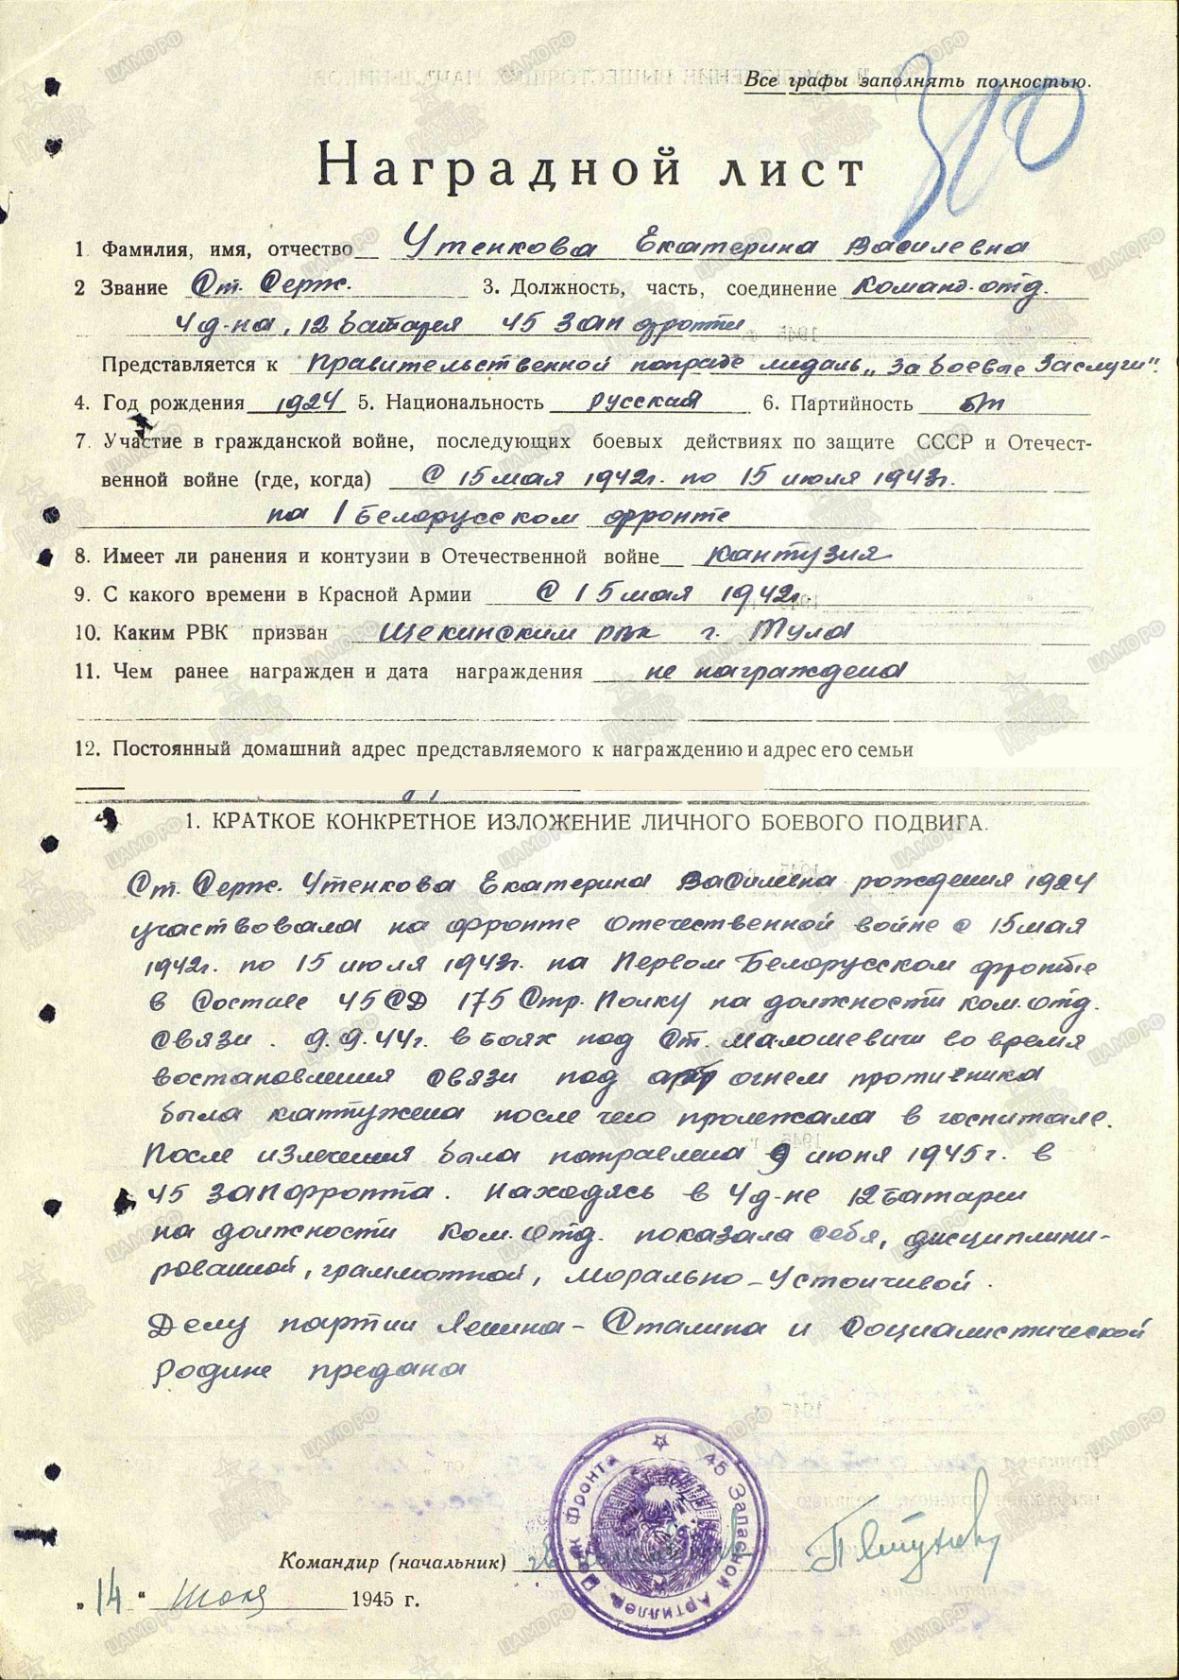 Все графы заполнять полностью.
Наградной лист
1. Фамилия, имя, отчество Утенкова Екатерина Василевна
2 Звание Ст. Серж. 3. Должность, часть, соединение Команд. отд.
4 д-на, 12 батарея 45 ЗАП фронта
Представляется к Правительственной награде медаль „За боевые Заслуги".
4. Год рождения 1924 5. Национальность русская 6. Партийность б/п
7. Участие в гражданской войне, последующих боевых действиях по защите СССР и Отечест-
венной войне (где, когда) С 15 мая 1942г. по 15 июля 1943г.
на 1 Белорусском фронте
8. Имеет ли ранения и контузии в Отечественной войне кантузия
9. С какого времени в Красной Армии С 15 мая 1942г.
10. Каким РВК призван Щекинским рвк г. Тула
11. Чем ранее награжден и дата награждения не награждена
12. Постоянный домашний адрес представляемого к награждению и адрес его семьи
1. КРАТКОЕ КОНКРЕТНОЕ ИЗЛОЖЕНИЕ ЛИЧНОГО БОЕВОГО ПОДВИГА.
Ст. Серж. Утенкова Екатерина рождения 1924
участвовала на фронте Отечественной войне с 15 мая
1942г. по 15 июля 1943г. на Первом Белорусском фронте
в Составе 45 СД 175 Стр. Полку на должности ком. отд.
Связи. 9.9.44г. в боях под Ст. Малошевичи во время
востановления связи под арт огнем противника
была кантужена после чего пролежала в госпитале.
После излечения была направлена 9 июня 1945г. в
45 ЗАП фронта. Находясь в 4 д-не 12 батареи
на должности Ком. Отд. показала себя, дисциплини-
рованной, граммотной, морально-устоичивой.
Делу партии Ленина-Сталина и Социалистической
родине предана
45 Запасной Артиллер. Полк Фронта
Командир (начальник)
„14" Июня 1945 г.